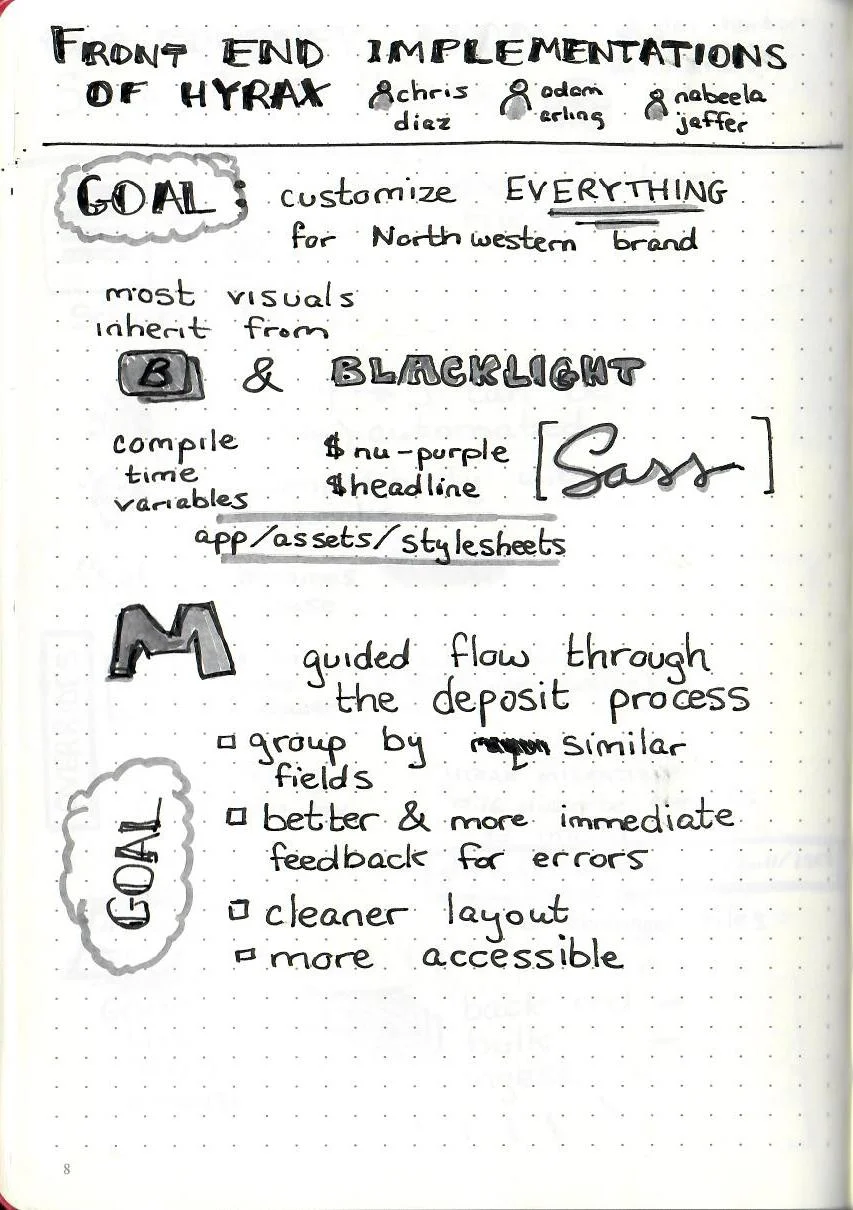 FRONT END IMPLEMENTATIONS
OF HYRAX chris diaz adam arling nabeela jaffer
GOAL: customize EVERYTHING
for Northwestern brand
most visuals
inherit from
B & BLACKLIGHT
compile time variables
$nu-purple
$headline
[Sass]
app/assets/stylesheets
M
guided flow through
the deposit process
GOAL
group by similar
fields
better & more immediate
feedback for errors
cleaner layout
more accessible
8